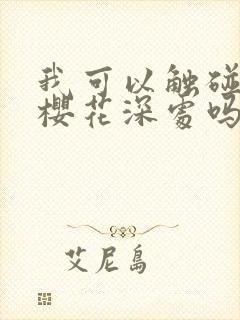 我可以触碰
樱花深处吗
艾尼岛